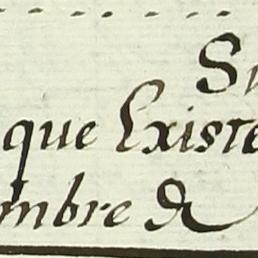 que Existe
mbre de